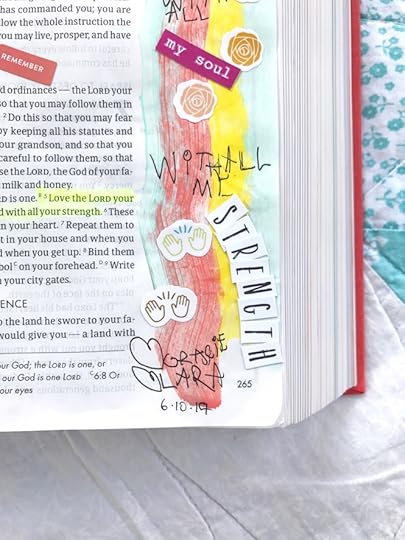 has commanded you; you are
follow the whole instruction the
you may live, prosper, and have
REMEMBER
ordinances — the LORD your
so that you may follow them in
² Do this so that you may fear
by keeping all his statutes and
our grandson, and so that you
careful to follow them, so that
se the LORD, the God of your fa-
milk and honey.
LORD is one. ⁵ Love the LORD your
and with all your strength. ⁶ These
in your heart. ⁷ Repeat them to
t in your house and when you
d when you get up. ⁸ Bind them
bol on your forehead. ⁹ Write
n your city gates.
ENCE
o the land he swore to your fa-
would give you — a land with
our God; the LORD is one, or
our God is one LORD ᶜ 6:8 Or
our eyes
WITH ALL
my soul
WITH ALL
ME
STRENGTH
GRACIE
LARA
265
6·10·19